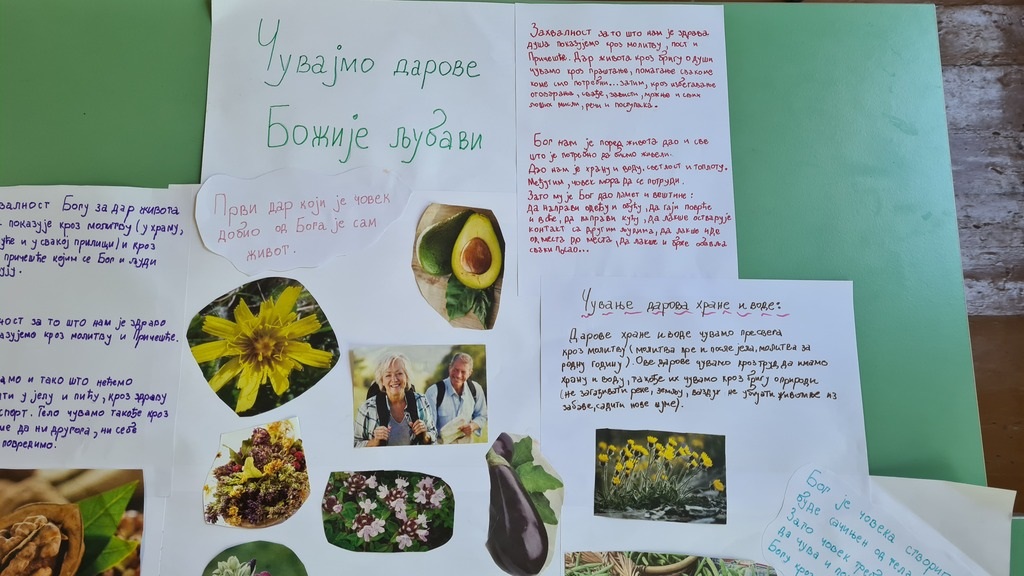 Чувајмо дарове
Божије љубави
Први дар који је човек
добио од Бога је сам
живот.
Захвалност за то што нам је здрава
душа показујемо кроз молитву, пост и
Причешће. Дар живота кроз бригу о души
чувамо кроз праштање, помагање свакоме
коме смо потребни... затим, кроз избегавање
оговарања, свађе, зависти, мржње и свих
лоших мисли, речи и поступака.
Бог нам је поред живота дао и све
што је потребно да бисмо живели.
Дао нам је храну и воду, светлост и топлоту.
Међутим, човек мора да се потруди.
Зато му је Бог дао памет и вештине:
да направи одећу и обућу, да гаји поврће
и воће, да направи кућу, да лакше остварује
контакт са другим људима, да лакше иде
од места до места, да лакше и брже обавља
сваки посао...
валност Богу за дар живота
показује кроз молитву (у храму,
куће и у свакој прилици) и кроз
причешће којим се Бог и људи
ност за то што нам је здраво
казујемо кроз молитву и Причешће.
амо и тако што нећемо
ти у јелу и пићу, кроз здраву
спорт. Тело чувамо такође кроз
ме да ни другога, ни себе
повредимо.
Чување дарова хране и воде:
Дарове хране и воде чувамо пресвега
кроз молитву (молитва пре и после јела, молитва за
родну годину). Ове дарове чувамо кроз труд, да имамо
храну и воду, такође их чувамо кроз бригу о природи
(не загађивати реке, земљу, ваздух не убијати животиње из
забаве, садити нове шуме).
Бог је човека створи
бude сачињен од тела
Зато човек треб
да чува и по
Богу кроз